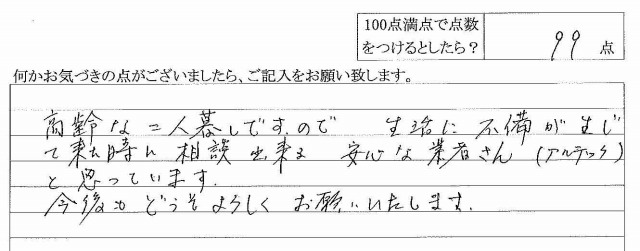 100点満点で点数
をつけるとしたら?
99 点
何かお気づきの点がございましたら、ご記入をお願い致します。
高齢な二人暮しですので 生活に不備が生じ
て来た時に相談出来る 安心な業者さん(アルテック)
と思っています.
今後もどうぞよろしくお願いいたします.